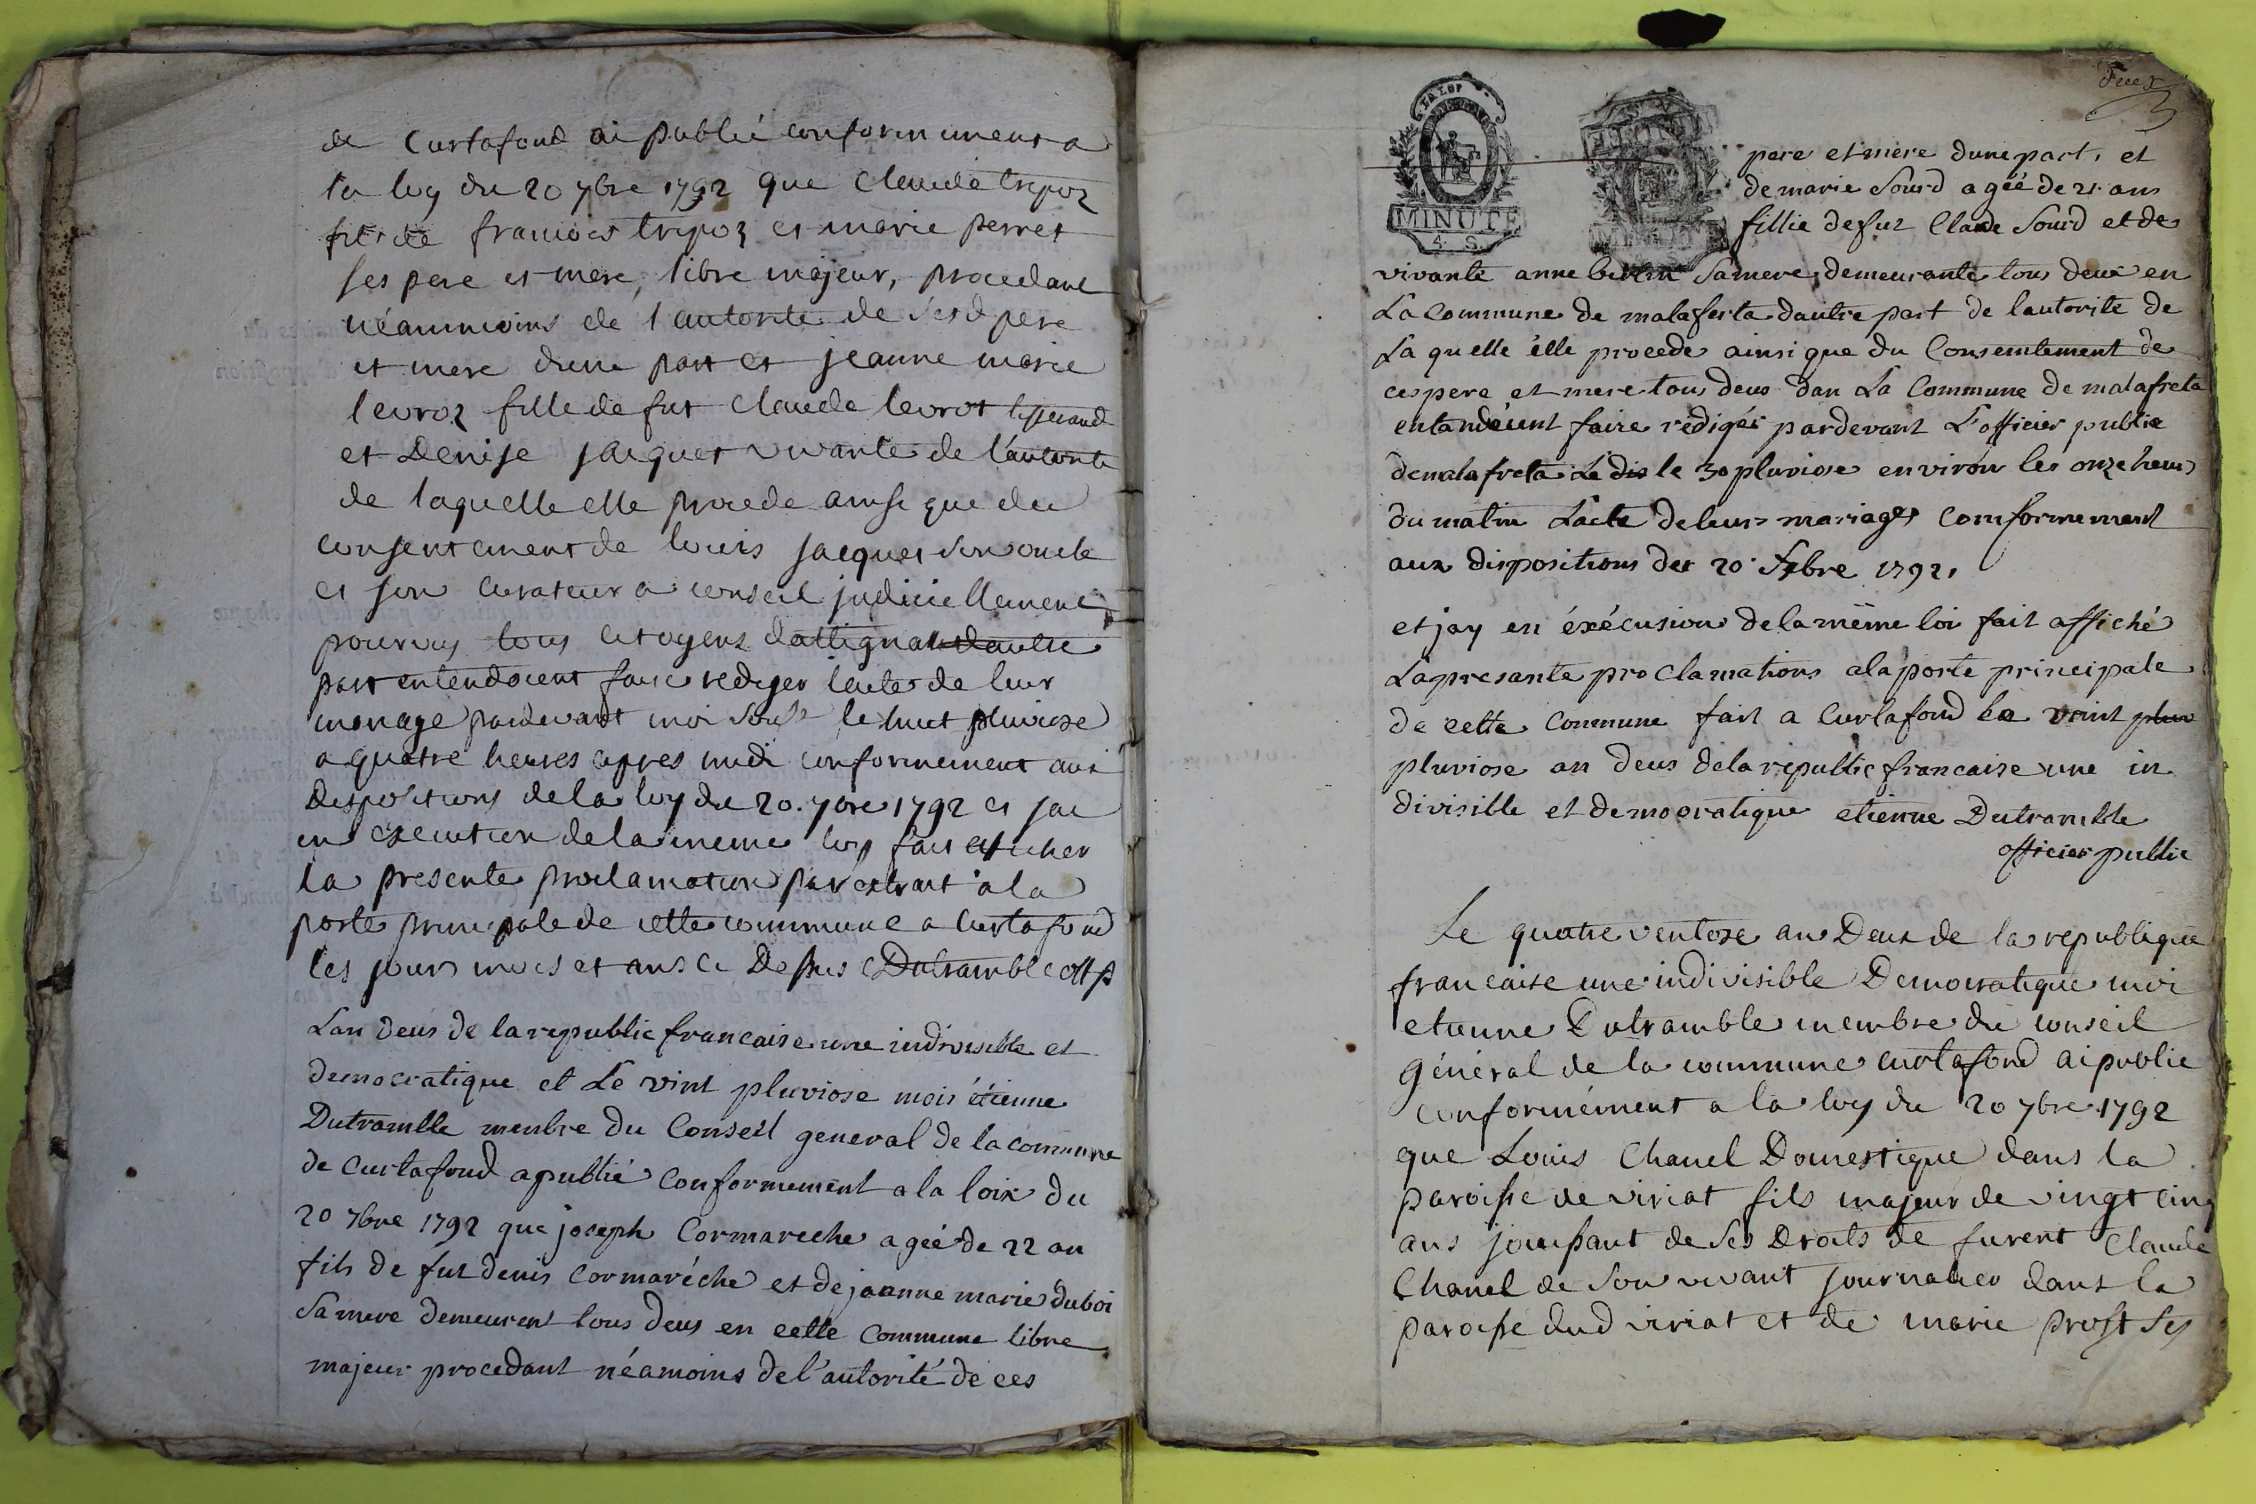 de Curtafond ai publié conformement a
la loy du 20 7bre 1792 que claude trepoz
fils de francois trepoz et marie perret
ses pere et mere, libre majeur, procedant
néanmoins de l autorité de sesd pere
et mere dune part et jeanne marie
levroz fille de fut claude levrot tisserand
et Denise jacquet vivante de l'autorité
de laquelle elle procede ainsi que du
consentement de louis jacquet son oncle
et son curateur a conseil judiciellement
pourvus tous citoyens dattignat dautre
part entendoient faire rediger lacte de leur
mariage pardevant moi sous le huit pluviose
a quatre heures apres midi conformement aux
dispositions de la loy du 20. 7bre 1792 et jai
en execution de la meme loy fait afficher
la presente proclamation par extrait a la
porte principale de cette commune a Curtafond
les jours mois et ans ci Dessus Dutramble off p
Lan deus de la republic francaise une indivisible et
democratique et Le vint pluviose mois étienne
Dutramble menbre du Conseil general de la commune
de Curtafond a publié conformement a la loix du
20 7bre 1792 que joseph Cormareche ageé de 22 an
fils de fut denis cormaréche et de joanne marie duboi
sa mere demeurent tous deus en cette commune libre
majeur procedant néamoins de l'autorité de ces
MINUTE
4. S.
pere et mere dune part, et
de marie Sourd ageé de 21 ans
fillie de fut Claude Sourd et de
vivante anne sa mere, demeurante tous deux en
La commune de malaferta dautre part de lautorite de
La quelle élle procede ainsi que du Consentement de
ces pere et mere tous deus dan La Commune de malafreta
entandéient faire rédigér pardevant L'officier public
de malafreta Le dis le 30 pluviose environ les onze heurs
du matin Lacte de leurs mariages comformement
aux dispositions der 20 7bre 1792,
et jay en éxécusion de la même loi fait affiché
La presante proclamations a la porte principale
de cette commune fait a Curtafond le vint pluv
pluviose an deus de la republic francaise une in
divisible et democratique etienne Dutramble
officier public
Le quatre ventose an Deux de la republique
francaise une indivisible Democratique moi
etienne Dutramble membre du conseil
général de la commune curtafond ai publie
conformément a la loy du 20 7bre 1792
que Louis Chanel Domestique dans la
paroisse de viriat fils majeur de vingt cinq
ans jouissant de ses Droits de furent Claude
Chanel de son vivant journalier dans la
paroisse dud viriat et de marie prost ses